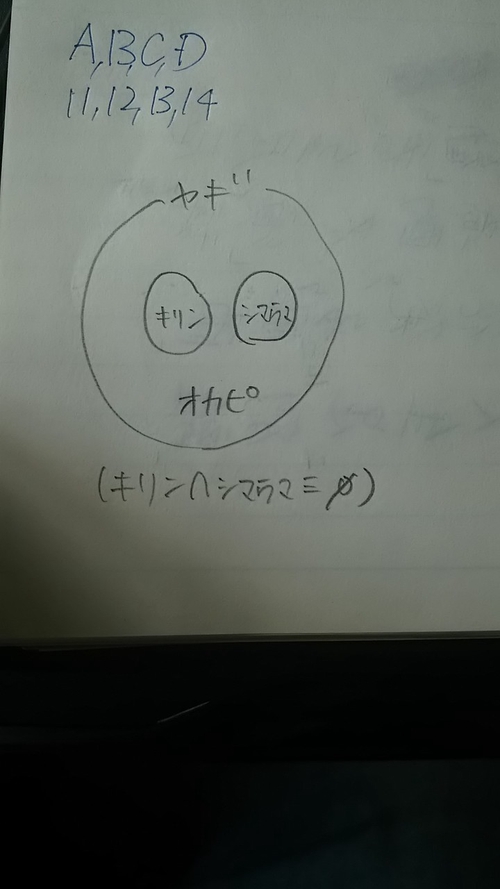 A,B,C,D
11,12,13,14
ヤギ
キリン シマウマ
オカピ
(キリン∩シマウマ≡∅)